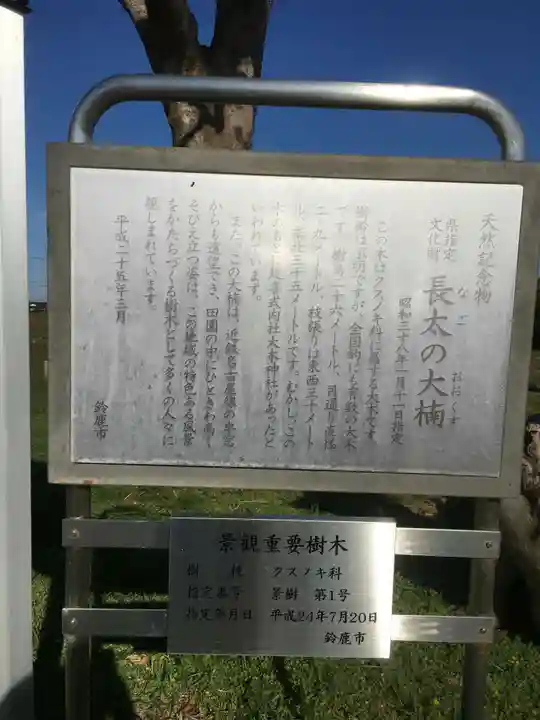 天然記念物
県指定
文化財
長太の大楠
なご
おおくす
昭和三十八年一月十一日指定
この木はクスノキ科に属する大木です。
樹齢は不明ですが、全国的にも有数の大木
です。樹高二十六メートル、目通り直径
二・九メートル、枝張りは東西三十メート
ル、南北三十五メートルです。むかし、この
木のもとに延喜式内社大木神社があったと
いわれています。
また、この大楠は、近鉄名古屋線の車窓
からも遠望でき、田園の中にひときわ高く
そびえ立つ姿は、この地域の特色ある風景
をかたちづくる樹木として多くの人々に
親しまれています。
平成二十五年三月
鈴鹿市
景観重要樹木
樹 種 クスノキ科
指定番号 景樹 第1号
指定年月日 平成24年7月20日
鈴鹿市